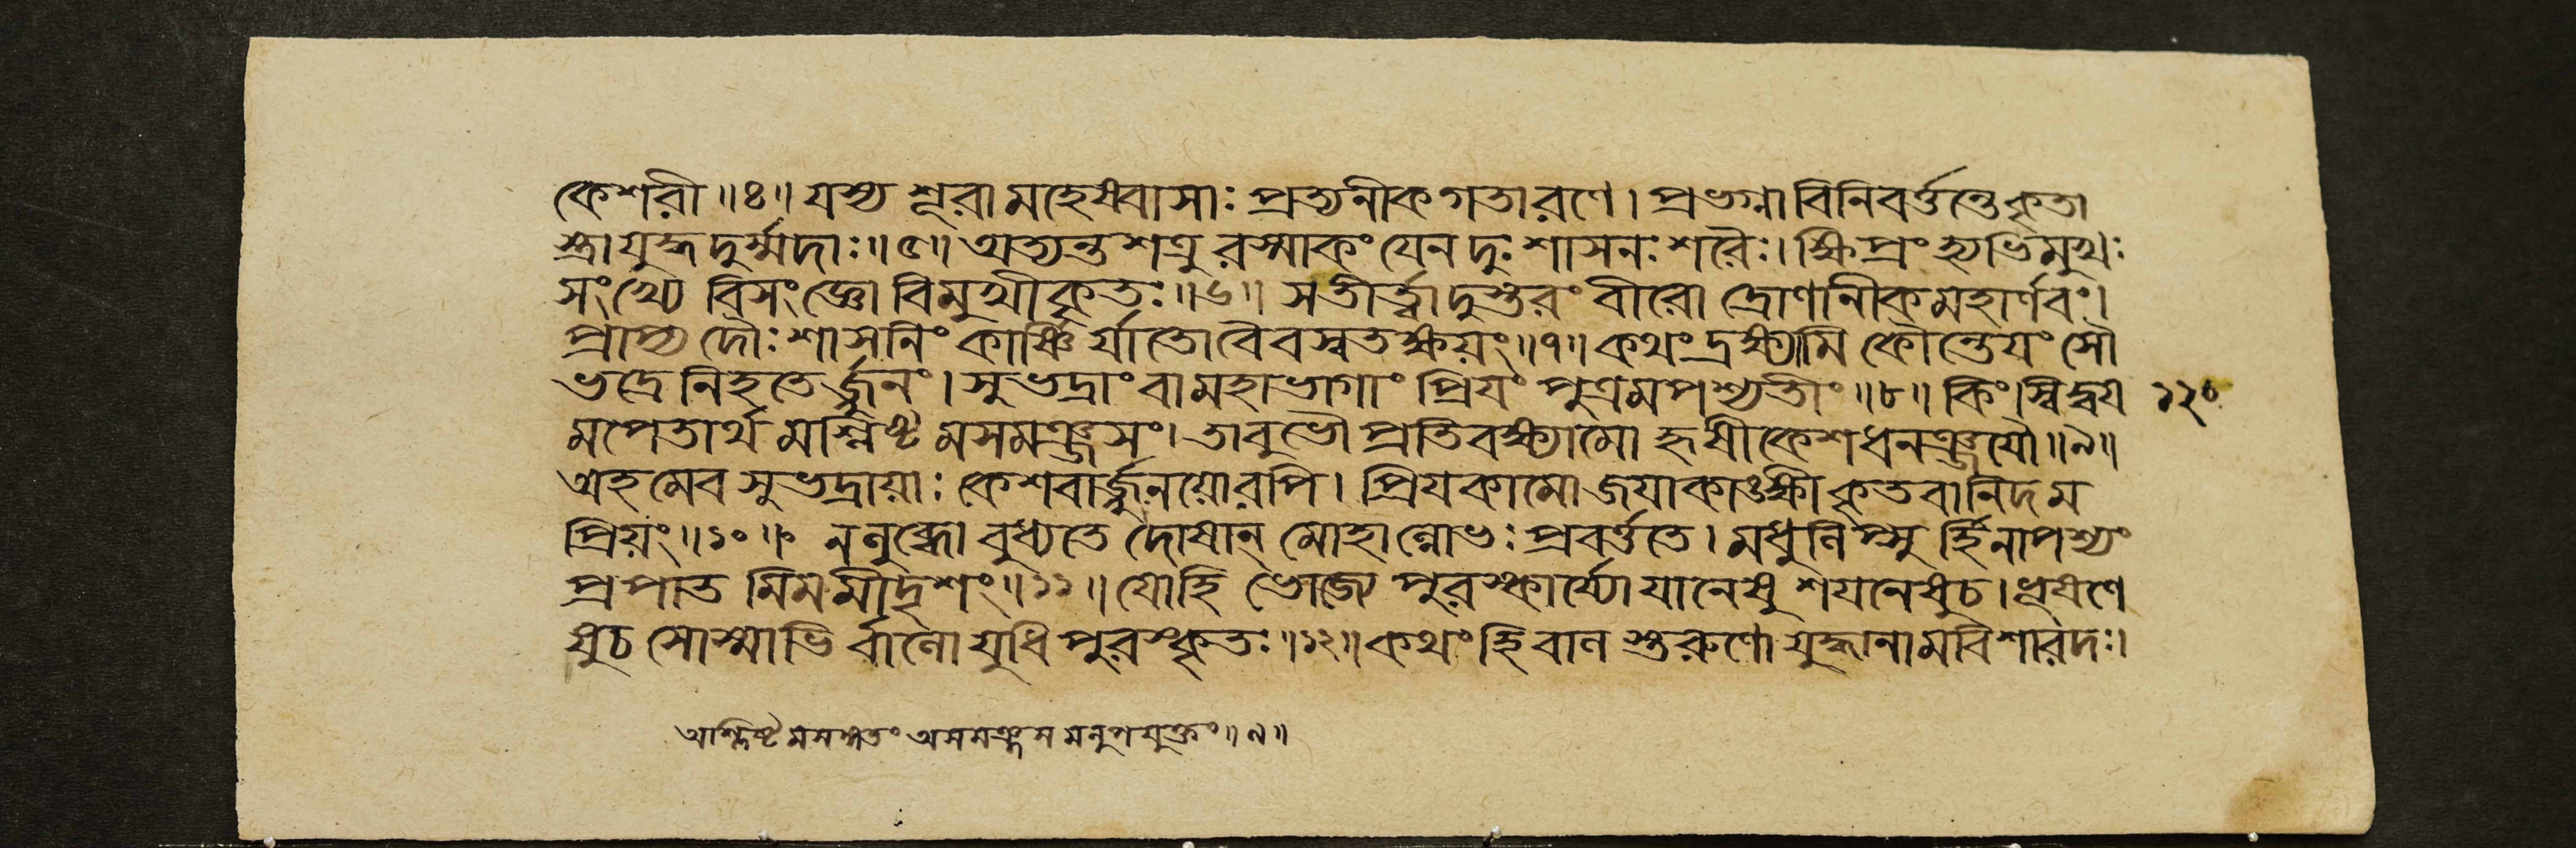 কেশরী ॥৪॥ যস্য শূরা মহেষ্বাসাঃ প্রত্যনীকগতা রণে। প্রভগ্না বিনিবর্ত্তন্তে কৃতা
স্ত্রা যুদ্ধদুর্ম্মদাঃ ॥৫॥ অত্যন্তশত্রুরস্মাকং যেন দুঃশাসনঃ শরৈঃ। ক্ষিপ্রং হ্যভিমুখঃ
সংখ্যে বিসংজ্ঞো বিমুখীকৃতঃ ॥৬॥ স তীর্ত্ত্বা দুস্তরং বীরো দ্রোণানীকমহার্ণবং।
প্রাপ্য দৌঃশাসনিং কার্ষ্ণির্যাতো বৈবস্বতক্ষয়ং ॥৭॥ কথং দ্রক্ষ্যামি কৌন্তেয়ং সৌ
ভদ্রে নিহতের্জ্জুনং। সুভদ্রাং বা মহাভাগাং প্রিয়ং পুত্রমপশ্যতীং ॥৮॥ কিং স্বিদ্বয়
মপেতার্থমশ্লিষ্টমসমঞ্জসং। তাবুভৌ প্রতিবক্ষ্যামো হৃষীকেশধনঞ্জয়ৌ ॥৯॥
অহমেব সুভদ্রায়াঃ কেশবার্জ্জুনয়োরপি। প্রিয়কামো জয়াকাঙ্ক্ষী কৃতবানিদম
প্রিয়ং ॥১০॥ ন লুব্ধো বুধ্যতে দোষান্ মোহাল্লোভঃ প্রবর্ত্ততে। মধুলিপ্সুর্হি নাপশ্যং
প্রপাতমিমমীদৃশং ॥১১॥ যো হি ভোজ্যে পুরস্কার্য্যো যানেষু শয়নেষু চ। ভূষণে
ষু চ সোস্মাভির্বালো যুধি পুরস্কৃতঃ ॥১২॥ কথং হি বালস্তরুণো যুদ্ধানামবিশারদঃ।
১২০
অশ্লিষ্টমসঙ্গতং অসমঞ্জসমনুপযুক্তং ॥৯॥